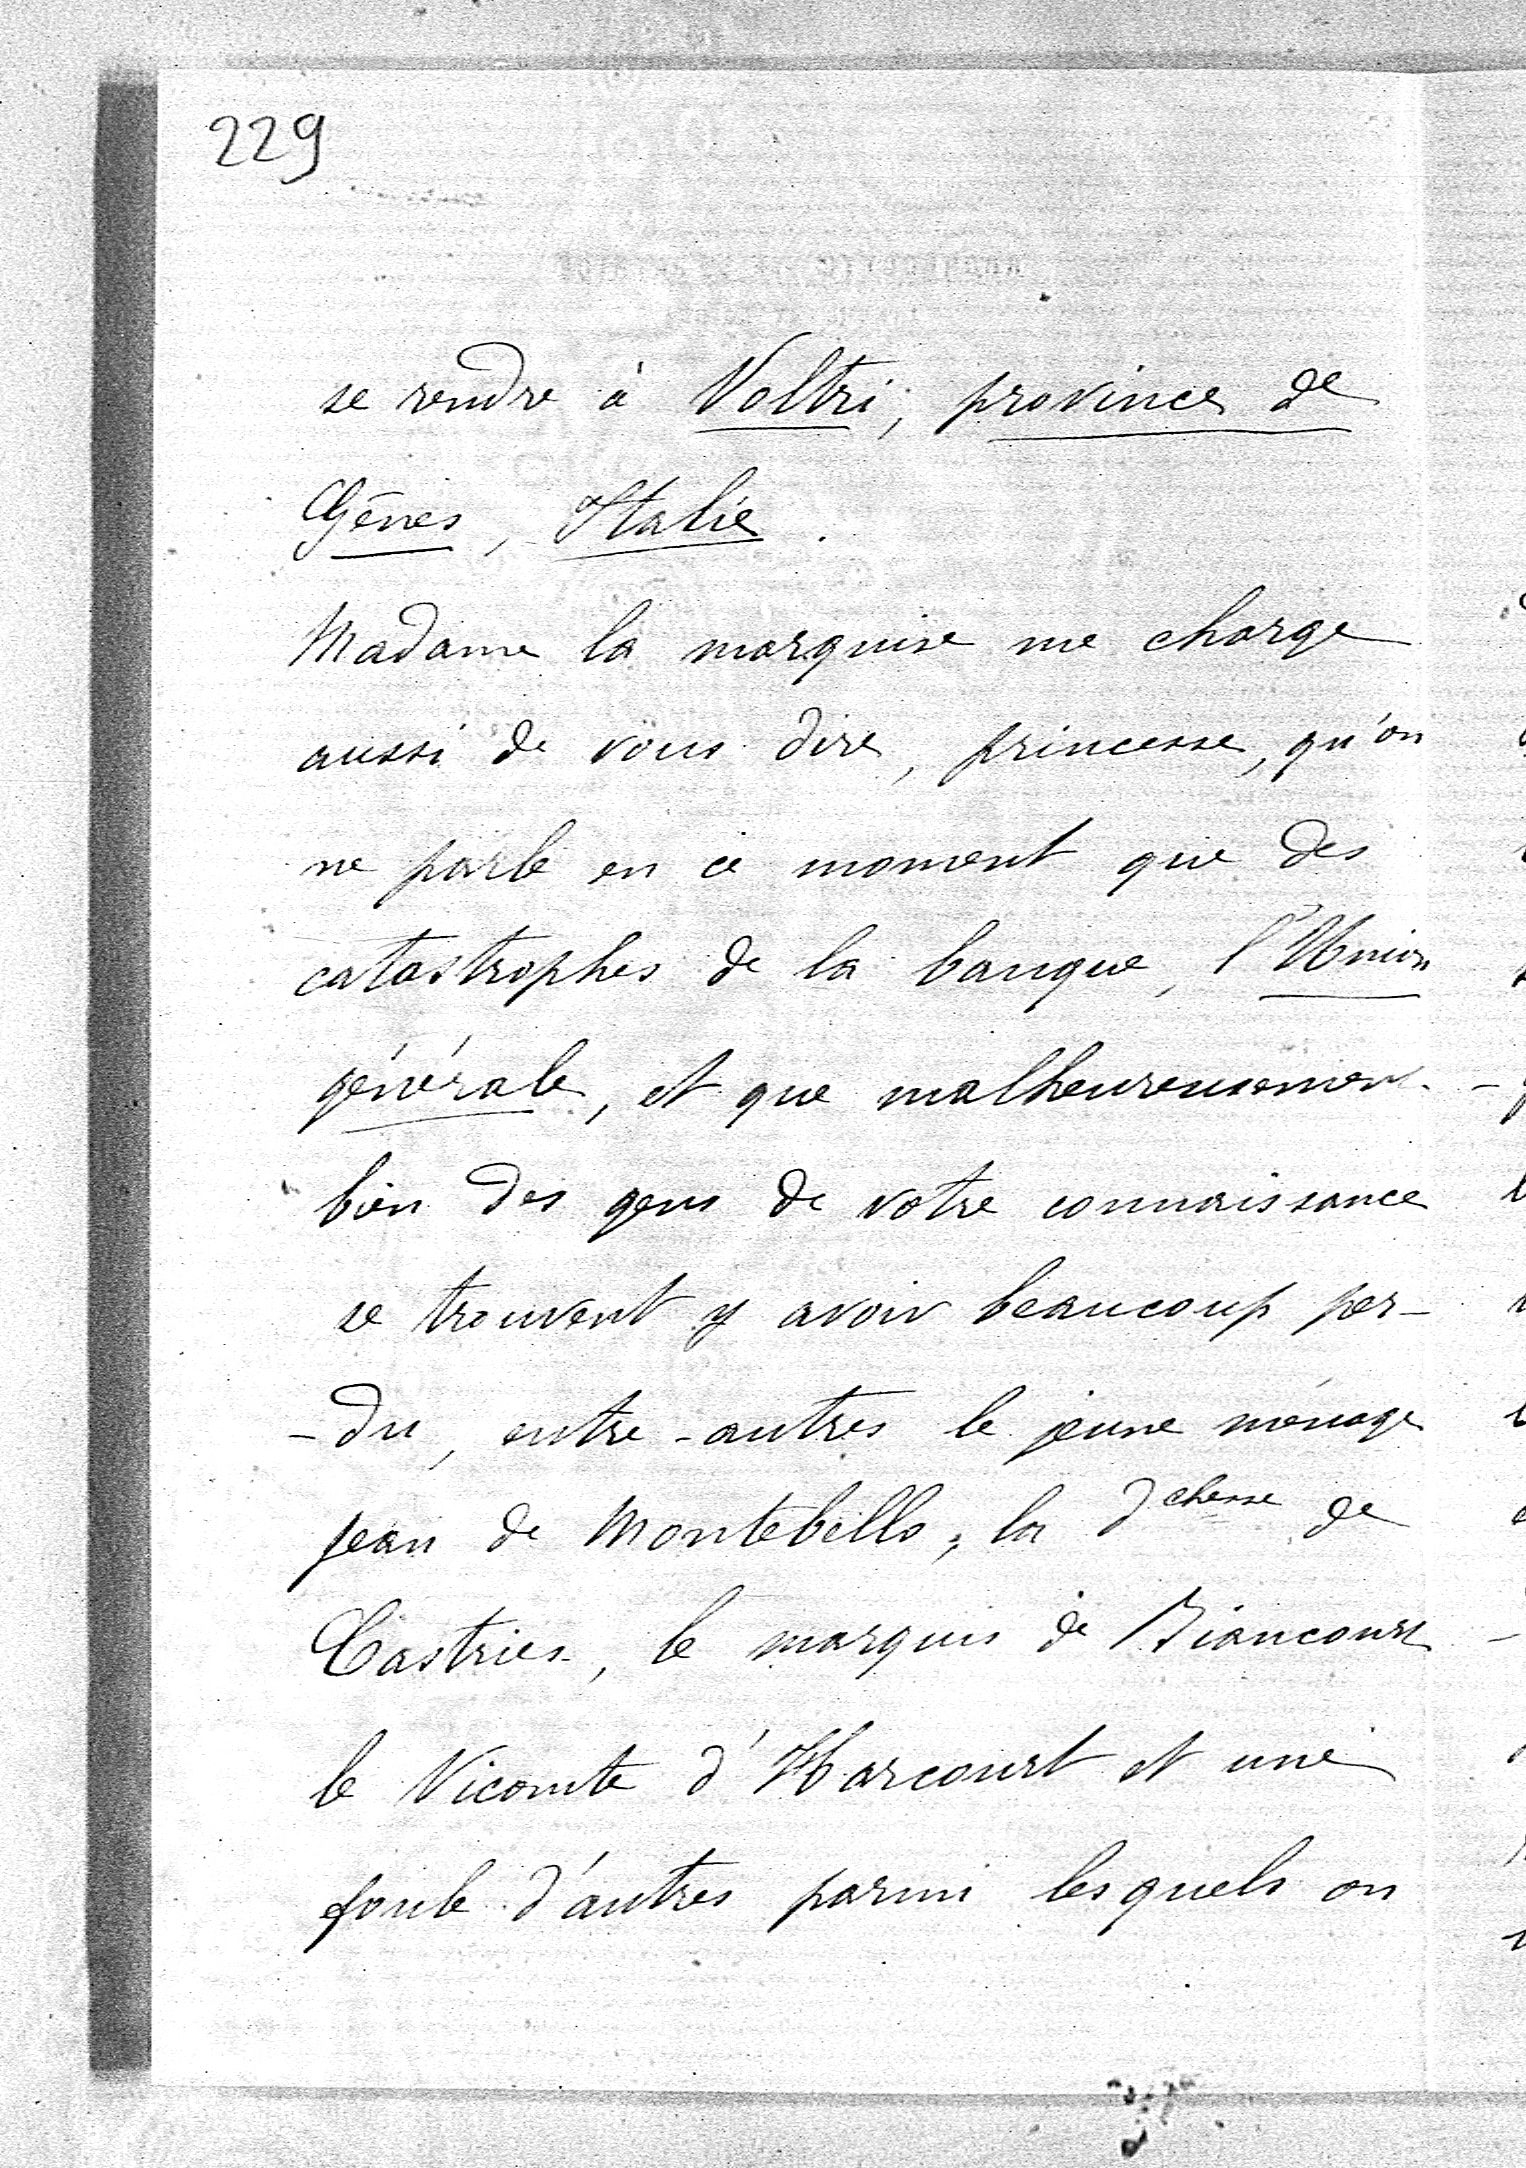 229
se rendre à Voltri, province de
Gênes, Italie.
Madame la marquise me charge
aussi de vous dire, princesse, qu'on
ne parle en ce moment que des
catastrophes de la banque, l'Union
générale, et que malheureusement
bien des gens de votre connaissance
se trouvent y avoir beaucoup per-
-du, entre-autres le jeune ménage
Jean de Montebello, la dchesse de
Castries, le marquis de Biancourt
le Vicomte d'Harcourt et une
foule d'autres parmi lesquels on